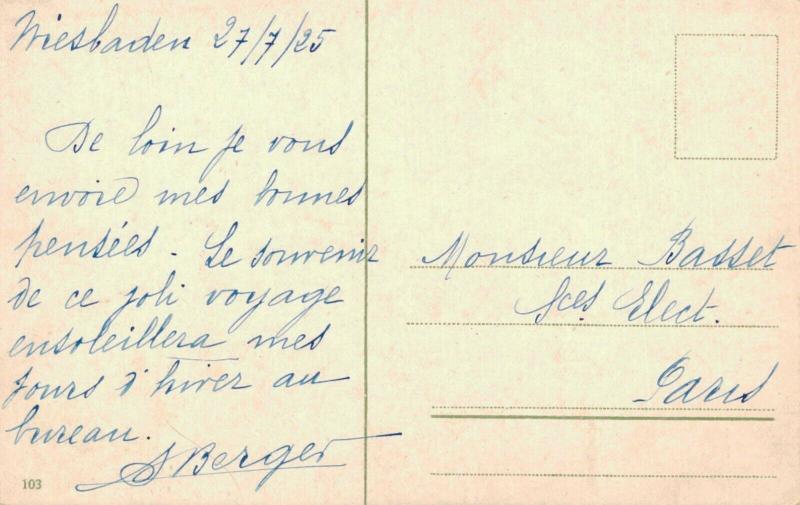 Wiesbaden 27/7/25
De loin je vous
envoie mes bonnes
pensées. Le souvenir
de ce joli voyage
ensoleillera mes
jours d'hiver au
bureau.
SBerger
103
Monsieur Basset
Sces Elect.
Paris